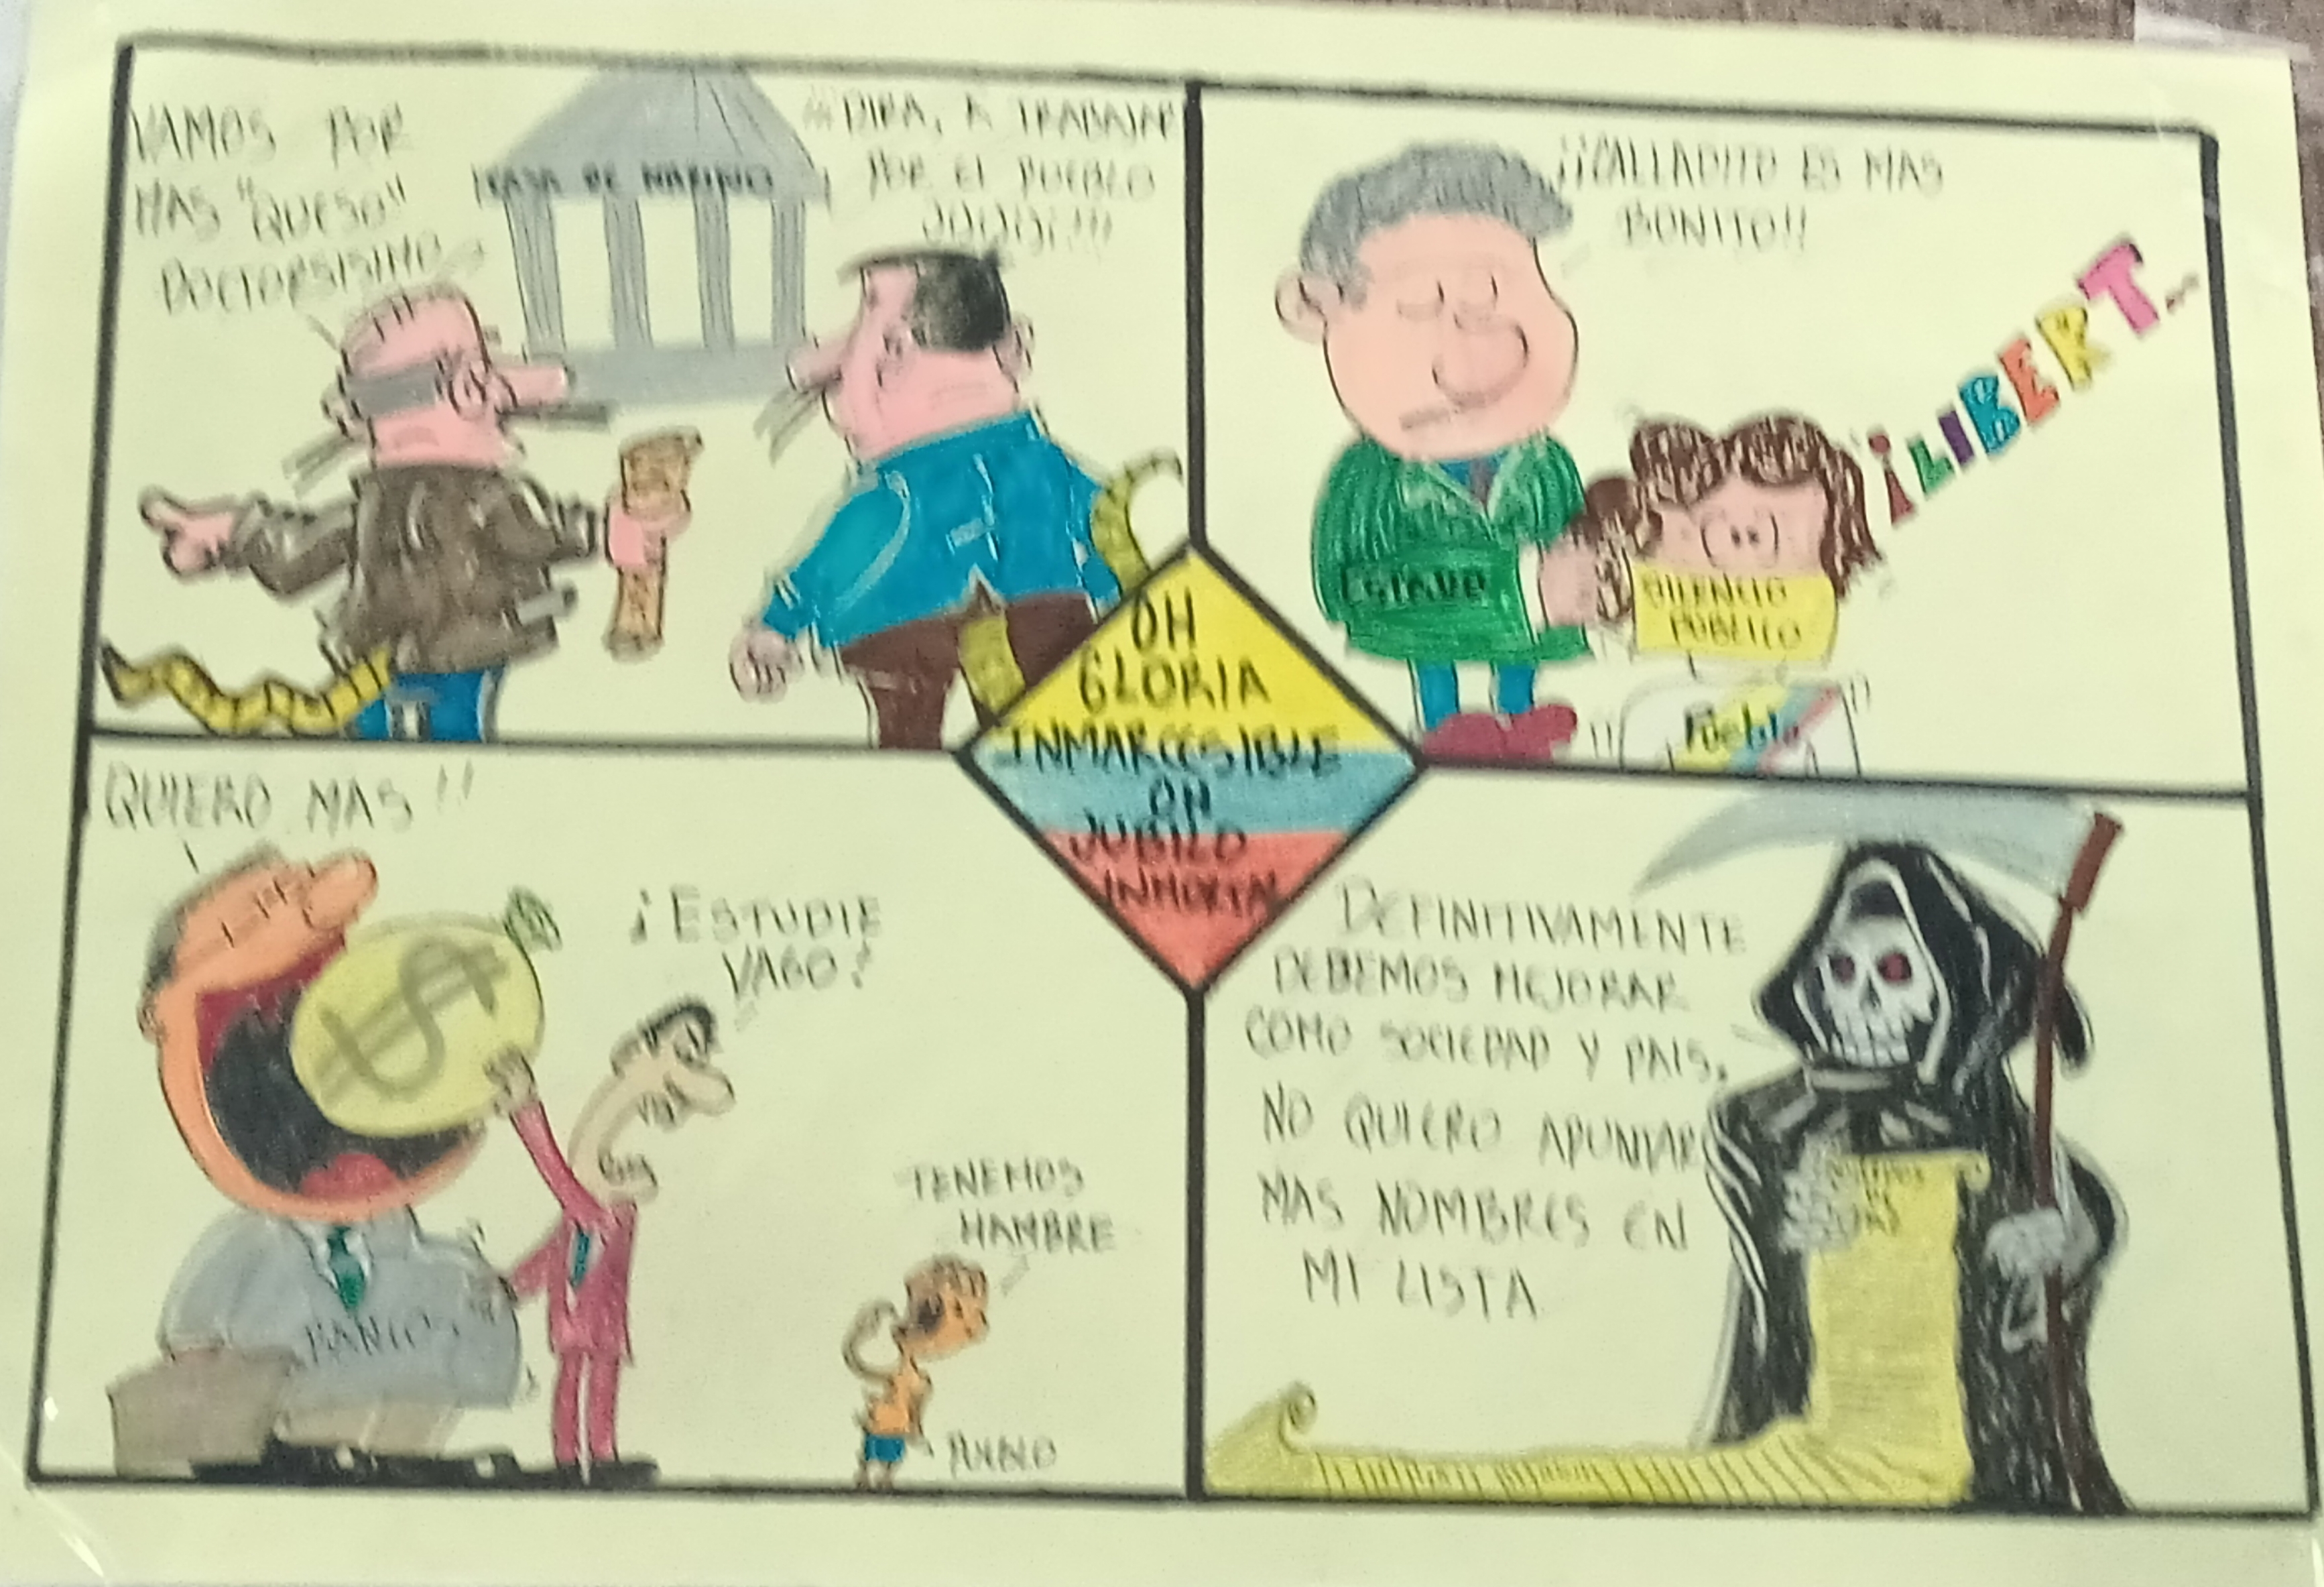 VAMOS POR
MAS "QUESO"
DOCTORSISIMO
CASA DE NARIÑO
A TRABAJAR
POR EL PUEBLO
¡¡CALLADITO ES MAS
BONITO!!
¡LIBERT...
ESTADO
SILENCIO
PUBLICO
Pueblo
OH
GLORIA
INMARCESIBLE
OH
JUBILO
INMORTAL
QUIERO MAS!!
¡ESTUDIE
VAGO!
BANCOS
TENEMOS
HAMBRE
PUEBLO
DEFINITIVAMENTE
DEBEMOS MEJORAR
COMO SOCIEDAD Y PAIS.
NO QUIERO APUNTAR
MAS NOMBRES EN
MI LISTA